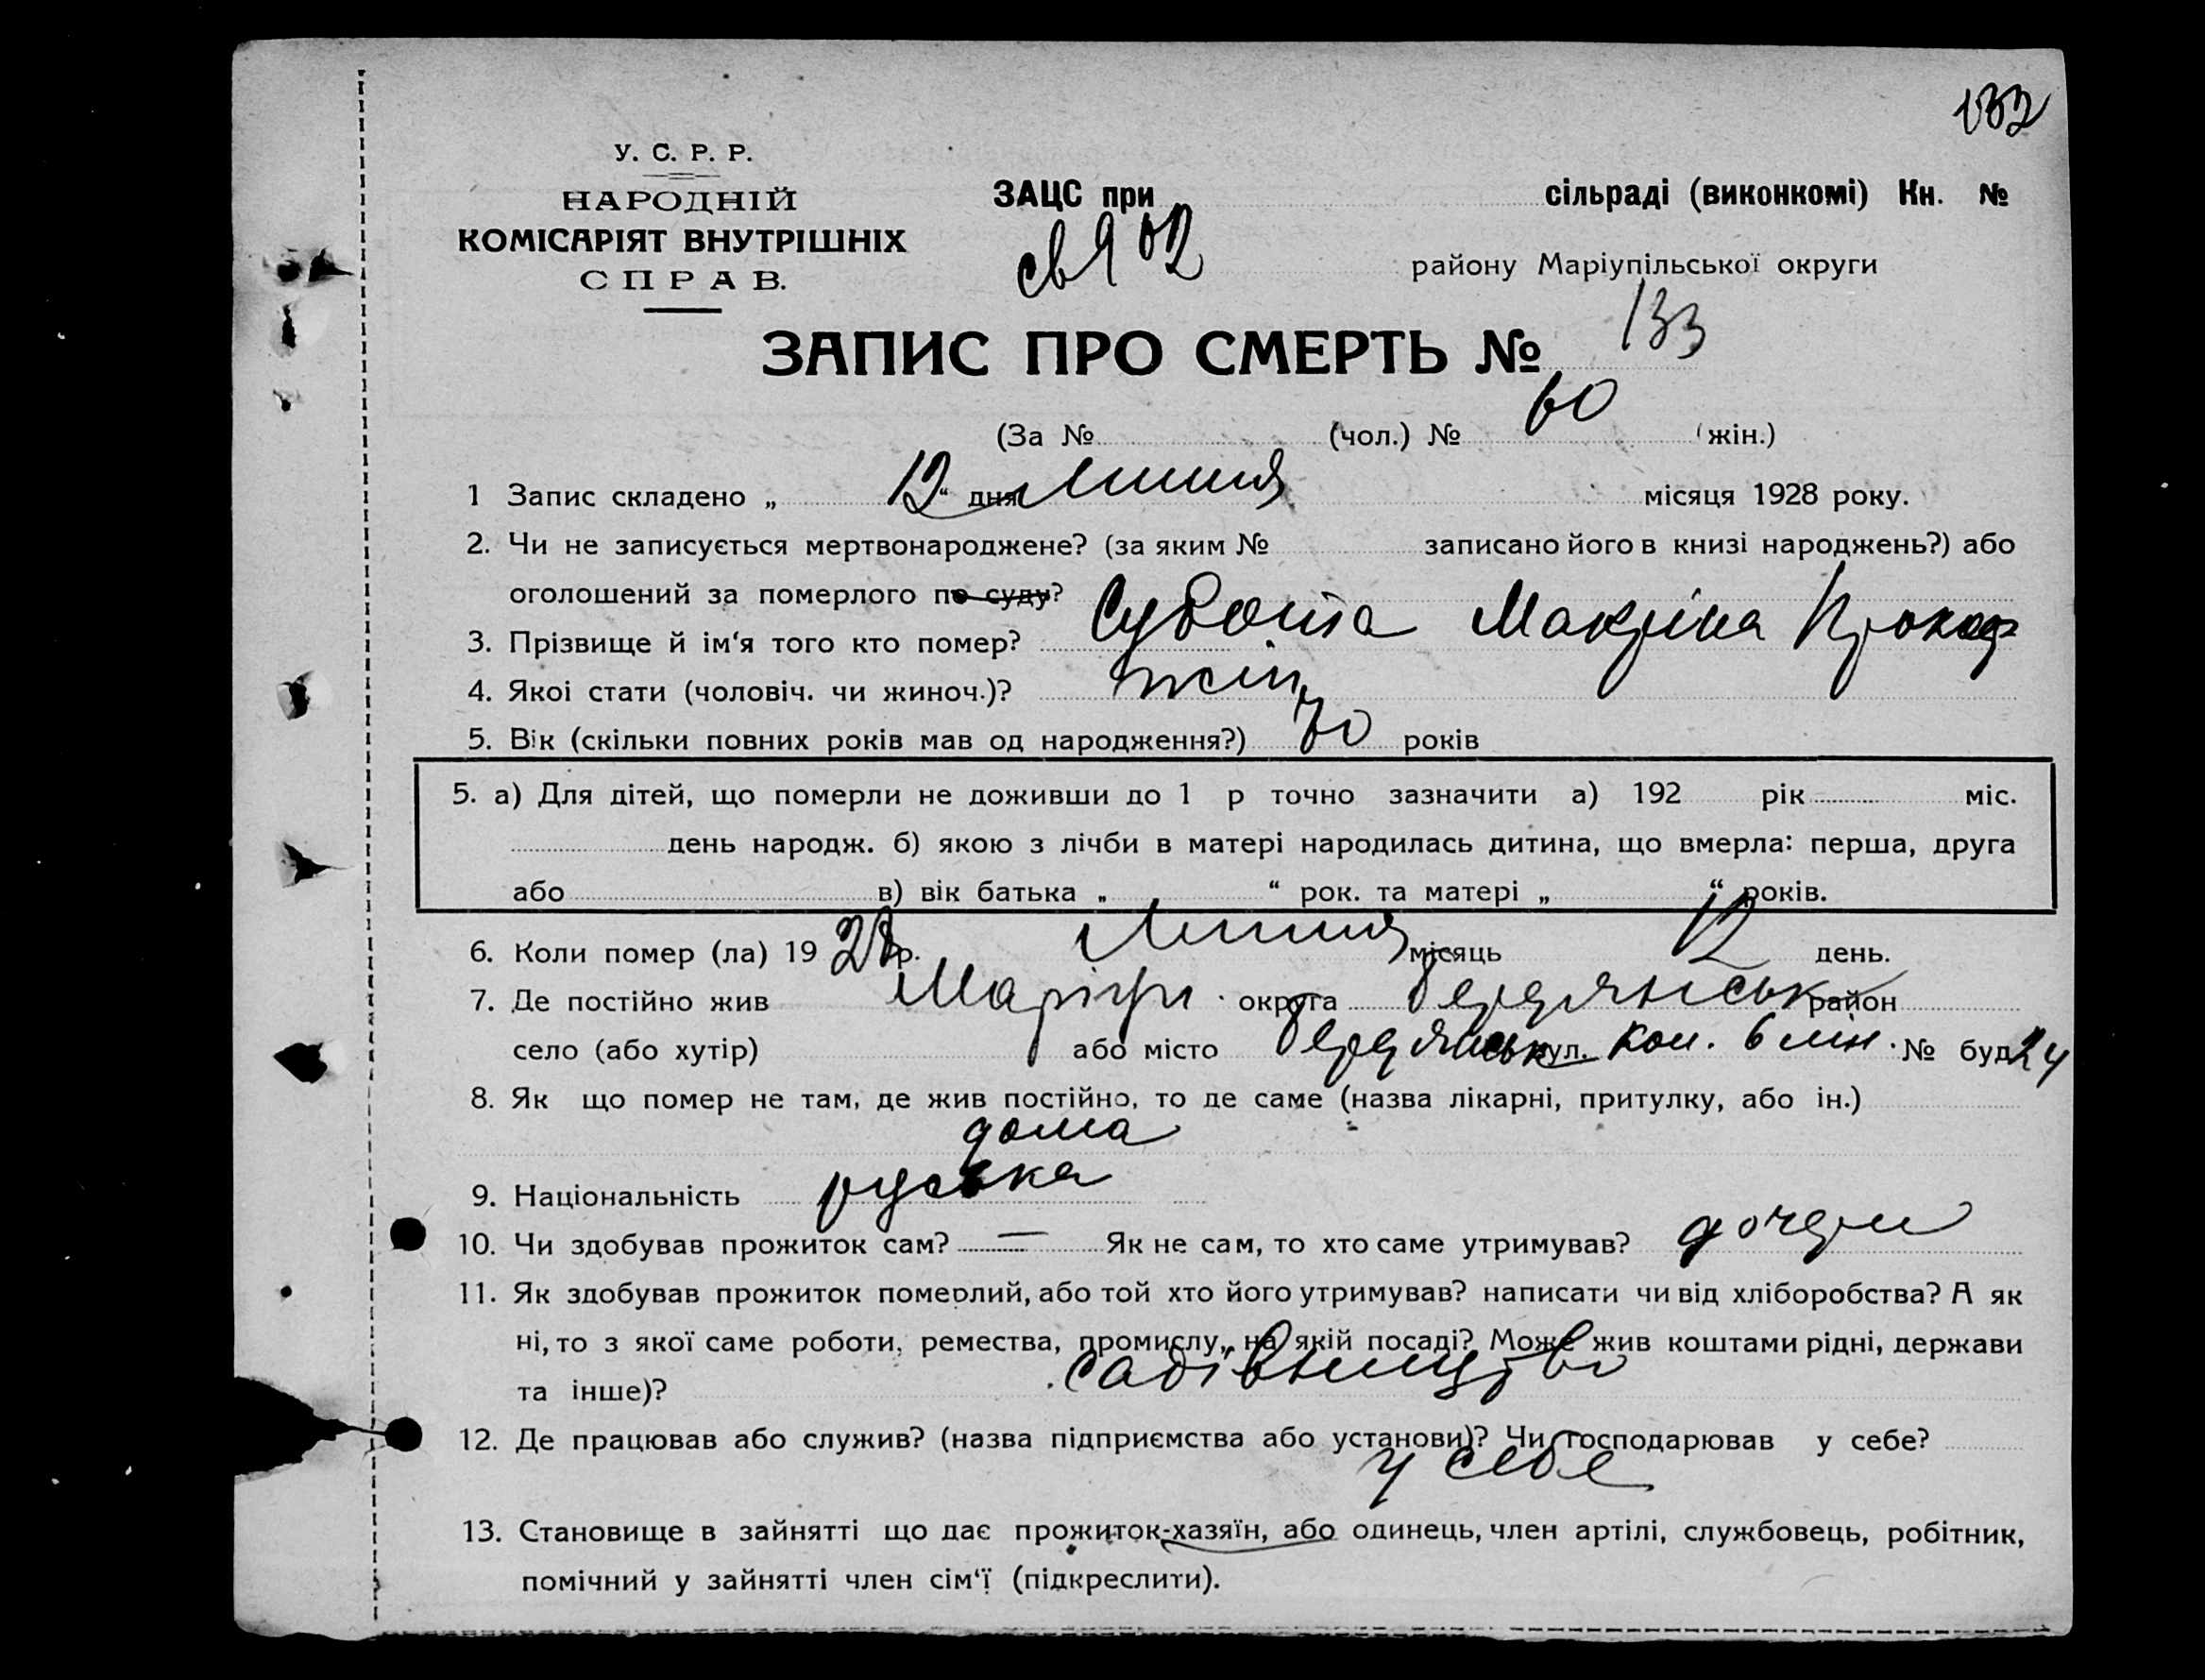 132
У. С. Р. Р.
НАРОДНІЙ
КОМІСАРІЯТ ВНУТРІШНІХ
СПРАВ.
ЗАЦС при сільраді (виконкомі) Кн. №
району Маріупільської округи
ЗАПИС ПРО СМЕРТЬ № 133
(За № (чол.) № 60 (жін.)
1 Запис складено „ 12 “ дня липня місяця 1928 року.
2. Чи не записується мертвонароджене? (за яким № записано його в книзі народжень?) або
оголошений за померлого по суду?
3. Прізвище й ім‘я того кто помер? Субота Макріна Прокоф
4. Якоі стати (чоловіч. чи жиноч.)? жін.
5. Вік (скільки повних років мав од народження?) 70 років
5. а) Для дітей, що померли не доживши до 1 р точно зазначити а) 192 рік міс.
день народж. б) якою з лічби в матері народилась дитина, що вмерла: перша, друга
або в) вік батька „ “ рок. та матері „ “ років.
6. Коли помер (ла) 19 28 р. Липня місяць 12 день.
7. Де постійно жив Маріуп. округа Бердянськ район
село (або хутір) або місто Бердянськ вул. Кол. 6 лін. № буд 24
8. Як що помер не там, де жив постійно, то де саме (назва лікарні, притулку, або ін.)
дома
9. Національність руська
10. Чи здобував прожиток сам? — Як не сам, то хто саме утримував? дочери
11. Як здобував прожиток померлий, або той хто його утримував? написати чи від хліборобства? А як
ні, то з якої саме роботи, ремества, промислу, на якій посаді? Може жив коштами рідні, держави
та інше)? садівництво
12. Де працював або служив? (назва підприємства або установи)? Чи господарював у себе?
у себе
13. Становище в зайнятті що дає прожиток-хазяїн, або одинець, член артілі, службовець, робітник,
помічний у зайнятті член сім‘ї (підкреслити).